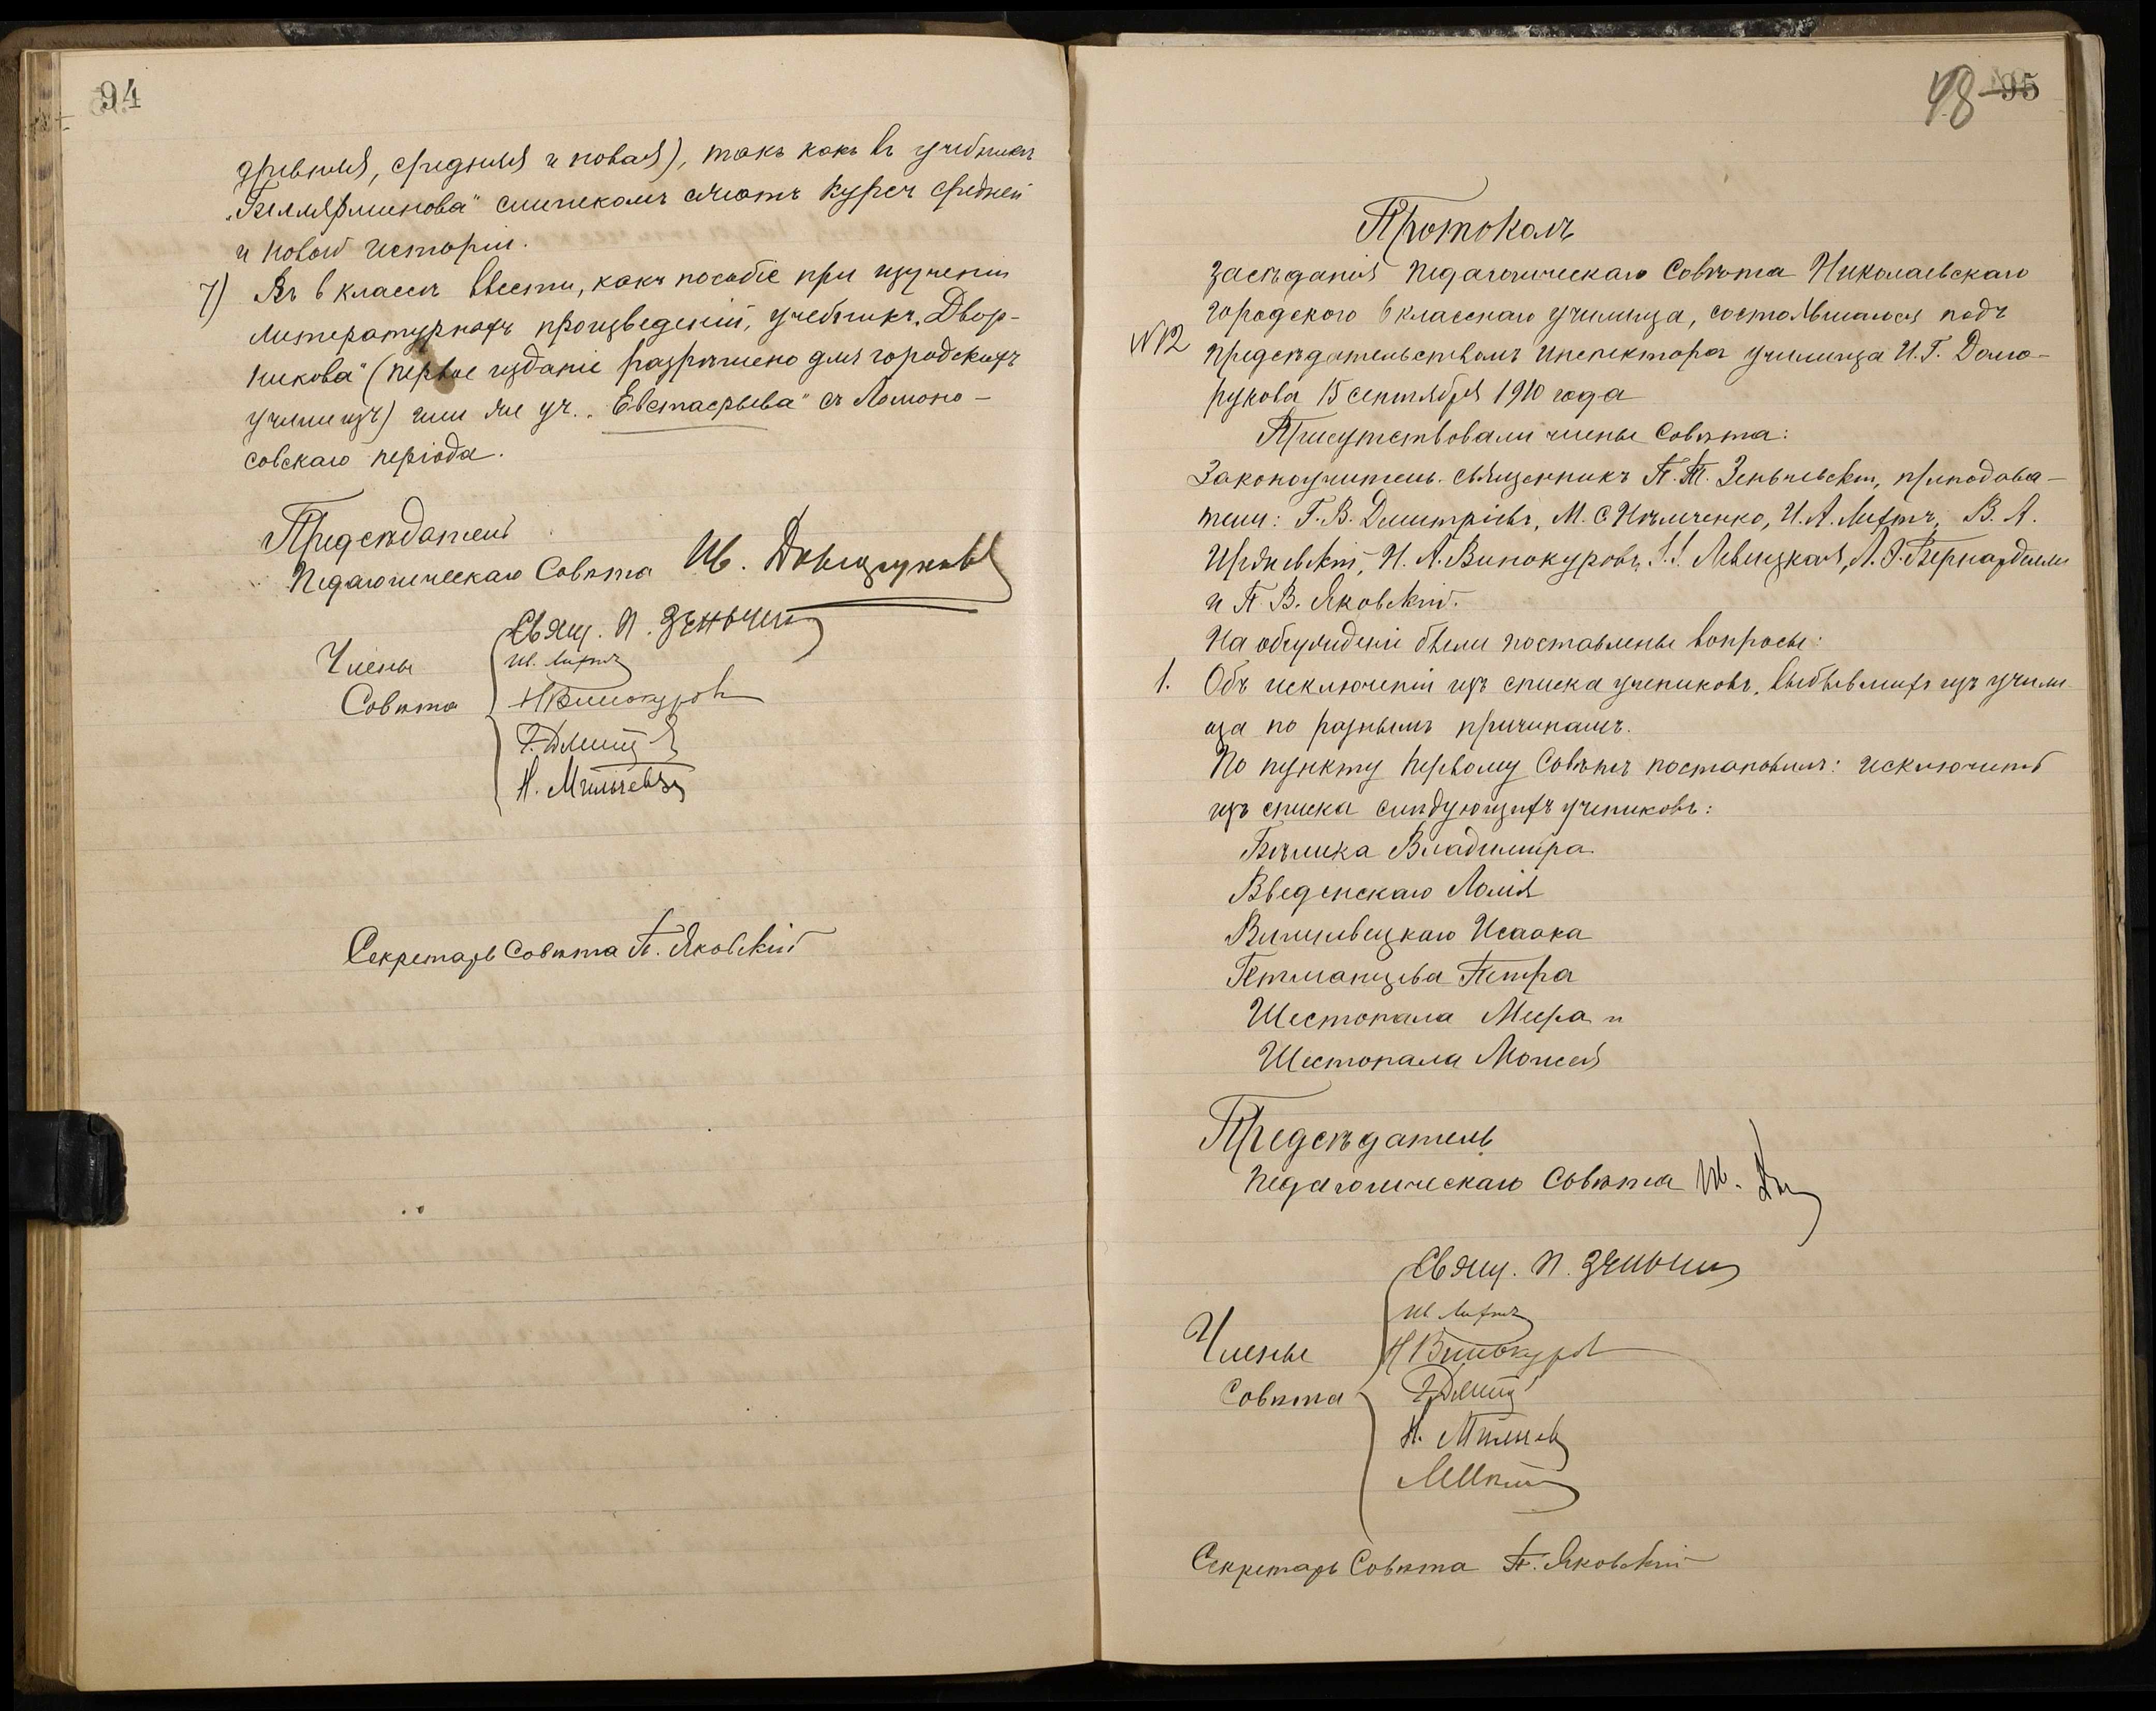 94
древняя, средняя и новая), такъ какъ въ учебникѣ
„Беллярминова" слишкомъ сжатъ курсъ средней
и новой исторіи.
7) Въ 6 классѣ ввести, какъ пособіе при изученіи
литературныхъ произведеній, учебникъ „Двор-
никова" (первое изданіе разрѣшено для городскихъ
училищъ) или же уч. „Евстафьева" съ Ломоно-
совскаго періода.
Предсѣдатель
Педагогическаго Совѣта Ив. Долгоруковъ
Члены
Совѣта
Свящ. П. Зеньчев
Ив. Лихтъ
Н Винокуровъ
Г. Дмит
Н.
Секретарь Совѣта П. Яковскій
48 95
Протоколъ
засѣданія Педагогическаго Совѣта Николаевскаго
городского 6 класснаго училища, состоявшагося подъ
№12
предсѣдательствомъ Инспектора училища И. Г. Долго-
рукова 15 сентября 1910 года
Присутствовали члены Совѣта:
Законоучитель священникъ П. Т. Зеньчевскій, преподава-
тели: Г. В. Дмитріевъ, М. С. Ильченко, И. А. Лихтъ, В. А.
Н. А. Винокуровъ, Левицкая,
и П. В. Яковскій.
На обсужденіе были поставлены вопросы:
1. Объ исключеніи изъ списка учениковъ, выбывшихъ изъ учили
ща по разнымъ причинамъ.
По пункту первому Совѣтъ постановилъ: исключить
изъ списка слѣдующихъ учениковъ:
Бѣлика Владиміра
Введенскаго
Вишневецкаго Исаака
Гетманцева Петра
Шестопала Меера и
Шестопала Моисея
Предсѣдатель
Педагогическаго Совѣта Ив.
Члены
Совѣта
Свящ. П. Зеньчев
Ив Лихтъ
Н Винокуров
Г. Дмит
Н.
Секретарь Совѣта П. Яковскій